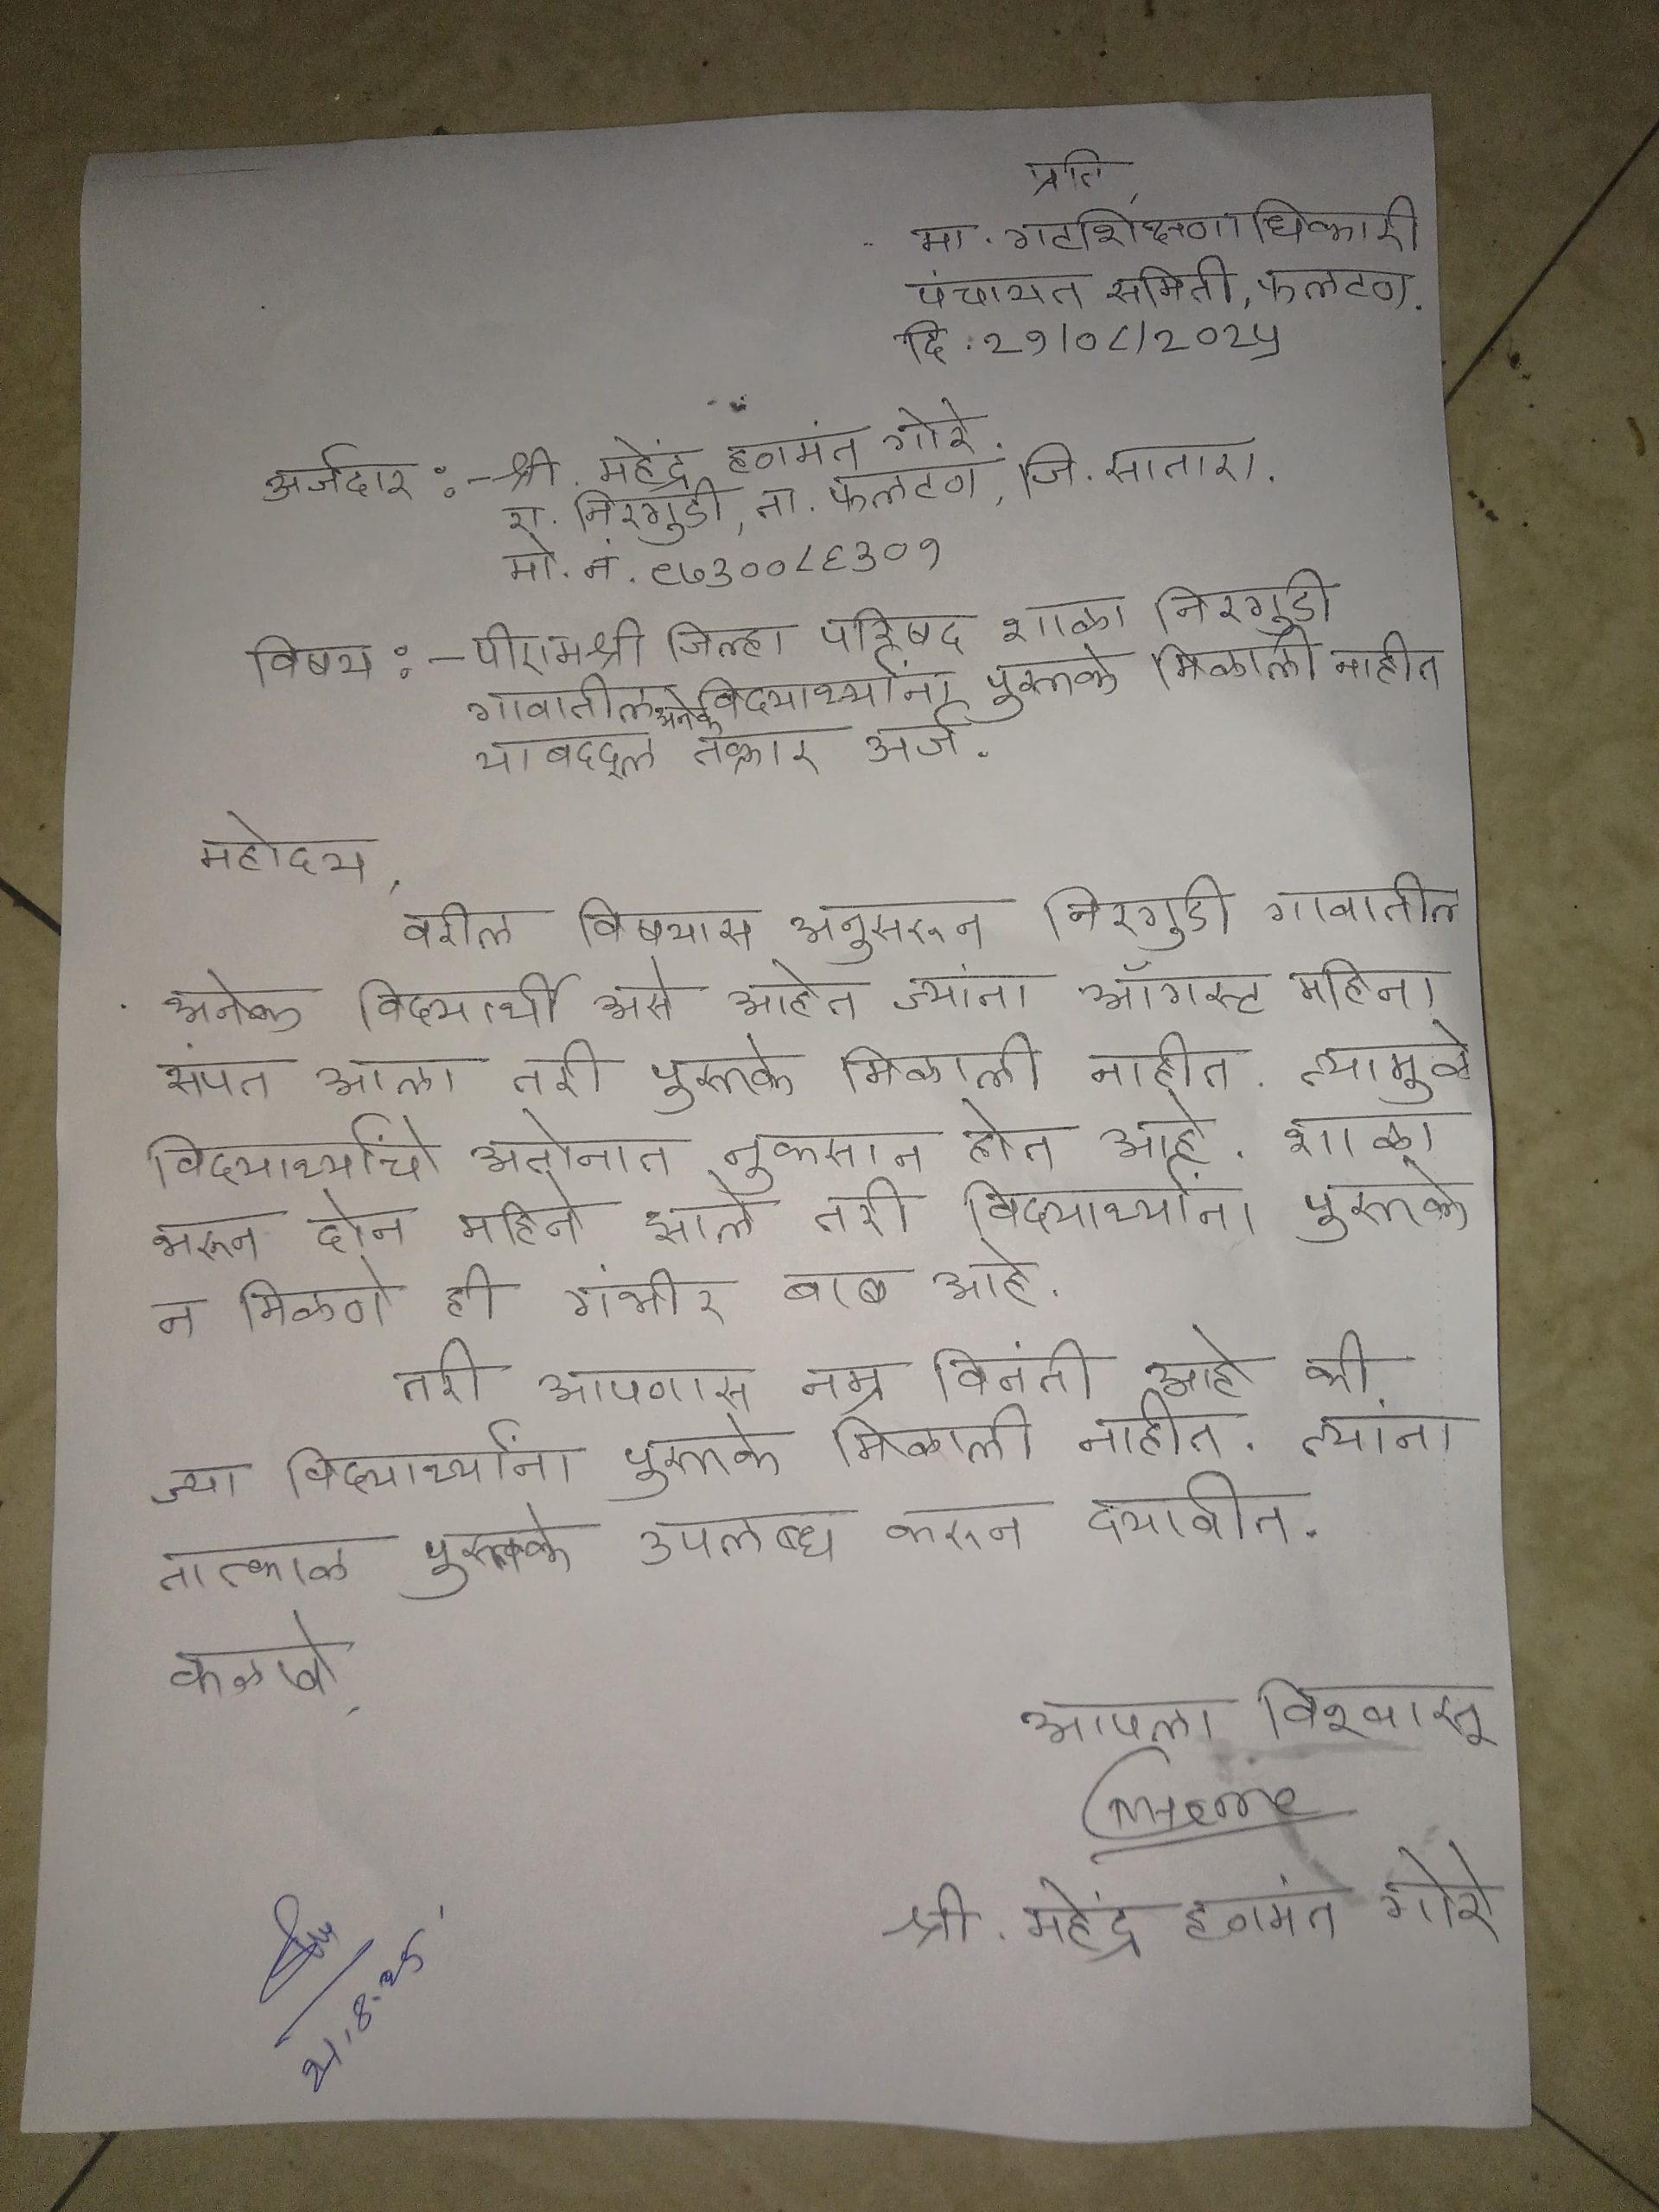 प्रति,
मा. गटशिक्षणाधिकारी
पंचायत समिती, फलटण.
दि. २१/०८/२०२५
अर्जदार :- श्री. महेंद्र हणमंत गोरे.
रा. निरगुडी, ता. फलटण, जि. सातारा.
मो. नं. ९७३००८६३०१
विषय :- पीएमश्री जिल्हा परिषद शाळा निरगुडी
गावातील अनेक विद्यार्थ्यांना पुस्तके मिळाली नाहीत
याबद्दल तक्रार अर्ज.
महोदय,
वरील विषयास अनुसरून निरगुडी गावातील
अनेक विद्यार्थी असे आहेत ज्यांना ऑगस्ट महिना
संपत आला तरी पुस्तके मिळाली नाहीत. त्यामुळे
विद्यार्थ्यांचे अतोनात नुकसान होत आहे. शाळा
भरून दोन महिने झाले तरी विद्यार्थ्यांना पुस्तके
न मिळणे ही गंभीर बाब आहे.
तरी आपणास नम्र विनंती आहे की
ज्या विद्यार्थ्यांना पुस्तके मिळाली नाहीत. त्यांना
तात्काळ पुस्तके उपलब्ध करून द्यावीत.
कळावे,
आपला विश्वासू
श्री. महेंद्र हणमंत गोरे
21.8.25